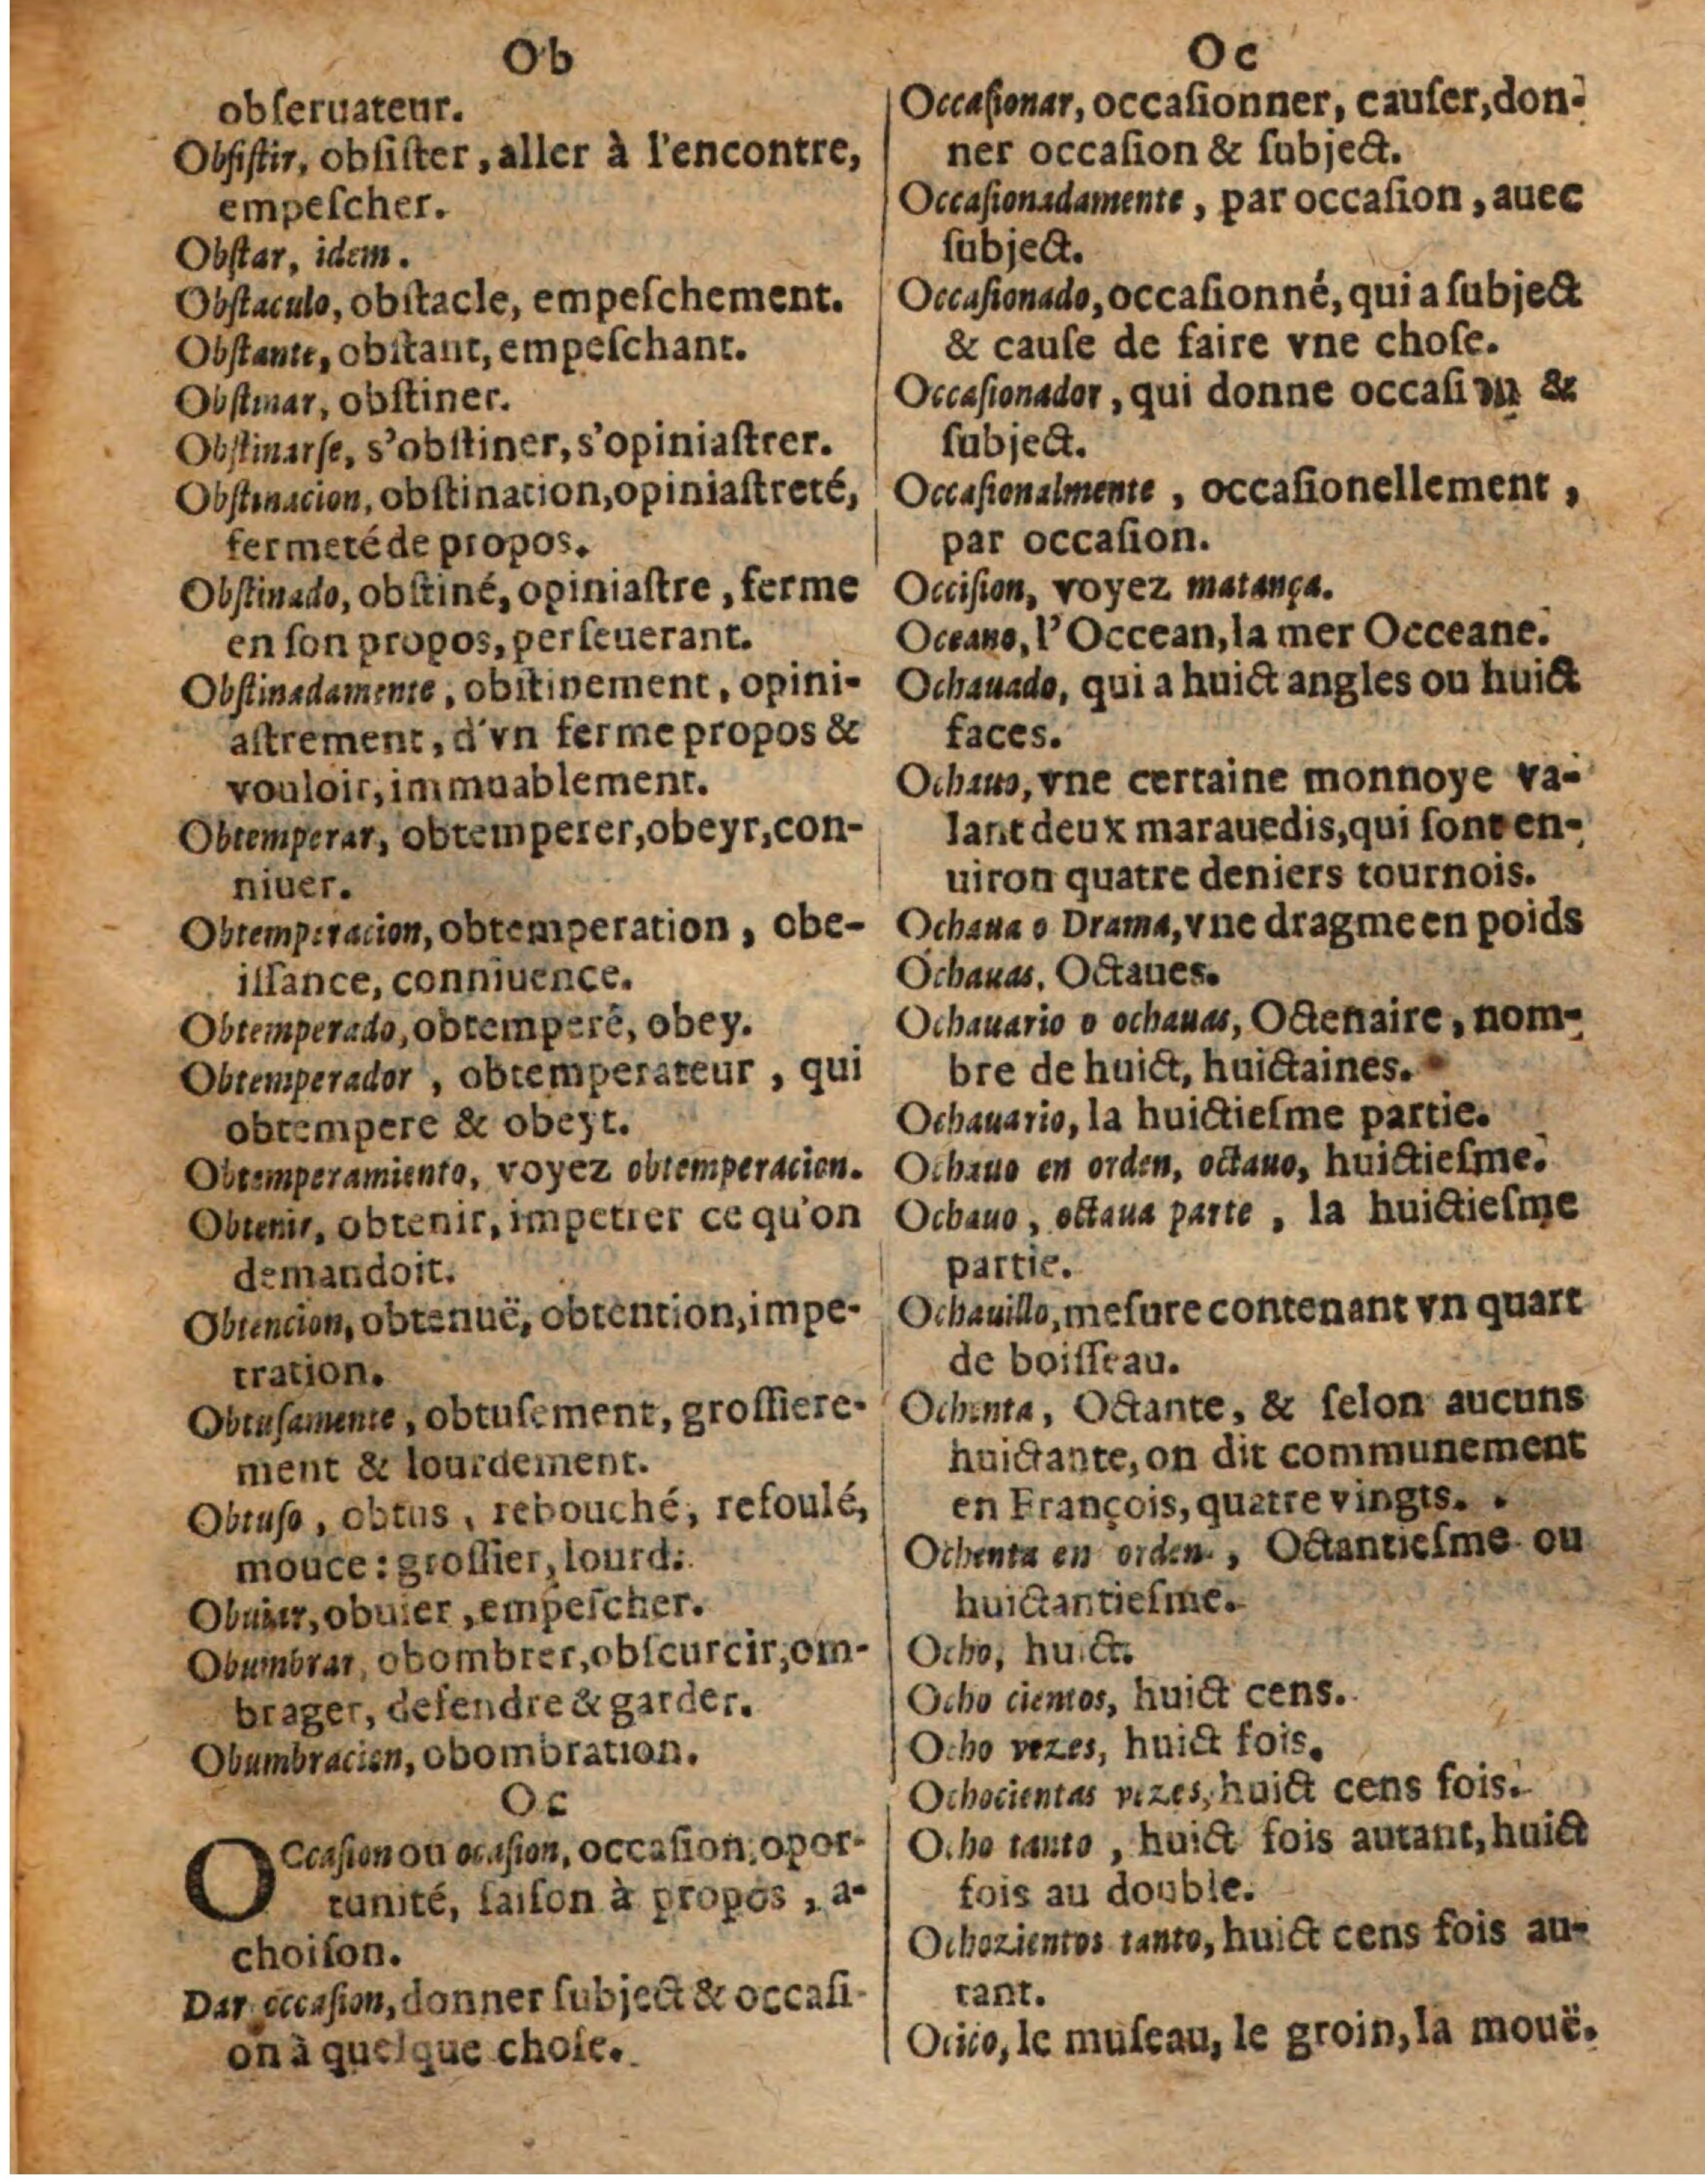 Ob
obſeruateur.
Obſiſtir, obſiſter, aller à l'encontre,
empeſcher.
Obſtar, idem.
Obſtaculo, obſtacle, empeſchement.
Obſtante, obſtant, empeſchant.
Obſtinar, obſtiner.
Obſtinarſe, s'obſtiner, s'opiniaſtrer.
Obſtinacion, obſtination, opiniaſtreté,
fermeté de propos.
Obſtinado, obſtiné, opiniaſtre, ferme
en ſon propos, perſeuerant.
Obſtinadamente, obſtinement, opini-
aſtrement, d'vn ferme propos &
vouloir, immuablement.
Obtemperar, obtemperer, obeyr, con-
niuer.
Obtemperacion, obtemperation, obe-
iſſance, conniuence.
Obtemperado, obtemperé, obey.
Obtemperador, obtemperateur, qui
obtempere & obeyt.
Obtemperamiento, voyez obtemperacion.
Obtenir, obtenir, impetrer ce qu'on
demandoit.
Obtencion, obtenuë, obtention, impe-
tration.
Obtuſamente, obtuſement, groſſiere-
ment & lourdement.
Obtuſo, obtus, rebouché, refoulé,
mouce: groſſier, lourd.
Obuiar, obuier, empeſcher.
Obumbrar, obombrer, obſcurcir, om-
brager, defendre & garder.
Obumbracion, obombration.
Oc
OCcaſion ou ocaſion, occaſion, opor-
tunité, ſaiſon à propos, a-
choiſon.
Dar occaſion, donner ſubject & occaſi-
on à quelque choſe.
Oc
Occaſionar, occaſionner, cauſer, don-
ner occaſion & ſubject.
Occaſionadamente, par occaſion, auec
ſubject.
Occaſionado, occaſionné, qui a ſubject
& cauſe de faire vne choſe.
Occaſionador, qui donne occaſion &
ſubject.
Occaſionalmente, occaſionellement,
par occaſion.
Occiſion, voyez matança.
Oceano, l'Occean, la mer Occeane.
Ochauado, qui a huict angles ou huict
faces.
Ochauo, vne certaine monnoye va-
lant deux marauedis, qui ſont en-
uiron quatre deniers tournois.
Ochaua o Drama, vne dragme en poids
Ochauas, Octaues.
Ochauario o ochauas, Octenaire, nom-
bre de huict, huictaines.
Ochauario, la huictieſme partie.
Ochauo en orden, octauo, huictieſme.
Ochauo, octaua parte, la huictieſme
partie.
Ochauillo, meſure contenant vn quart
de boiſſeau.
Ochenta, Octante, & ſelon aucuns
huictante, on dit communement
en François, quatre vingts.
Ochenta en orden, Octantieſme ou
huictantieſme.
Ocho, huict.
Ocho cientos, huict cens.
Ocho vezes, huict fois.
Ochocientas vezes, huict cens fois.
Ocho tanto, huict fois autant, huict
fois au double.
Ochozientos tanto, huict cens fois au-
tant.
Ocico, le muſeau, le groin, la mouë.